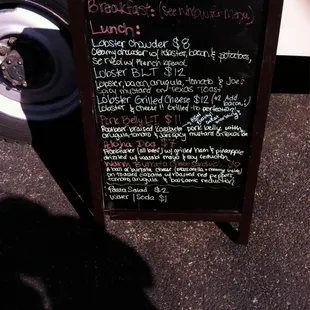 Breakfast: (see window for Menu)
Lunch:
Lobster Chowder $8
Creamy chowder w/ lobster, bacon & potatoes,
served w/ french bread
Lobster BLT $12
Lobster, bacon, arugula, tomato & Joe's
spicy mustard on Texas Toast
Lobster Grilled Cheese $12 (+2 Add bacon)
Lobster & cheese !! Grilled to perfection!
Pork Belly LT $11
braised pork belly with
arugula, tomato & Joe's spicy mustard
Aloha Dog $7
(all beef) w/ grilled Ham & pineapple
drizzled w/ wasabi mayo & soy reduction
Warm Burrata
A ball of burrata cheese (mozzarella + cream)
on toasted w/ roasted red peppers,
tomato, arugula & balsamic reduction
Pasta Salad $2
Water | Soda $1